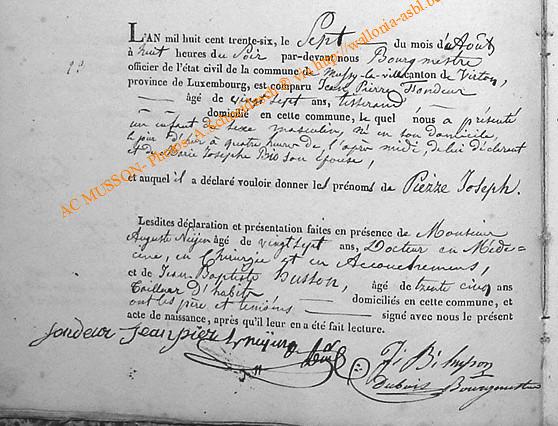 L'AN mil huit cent trente-six, le Sept du mois d'Août
à huit heures du Soir par-devant nous Bourgmestre
officier de l'état civil de la commune de Mussy-la-ville canton de Virton,
province de Luxembourg, est comparu Jean Pierre
âgé de vingt sept ans, tisserand
domicilié en cette commune, le quel nous a présenté
un enfant du sexe masculin, né en son domicile,
le jour d'hier à quatre heures de l'après midi, de lui déclarant
et de Marie Josephe son épouse,
et auquel il a déclaré vouloir donner les prénoms de Pierre Joseph.
Lesdites déclaration et présentation faites en présence de Monsieur
Auguste âgé de vingt sept ans, Docteur en Méde-
cine, en Chirurgie et en Accouchemens,
et de Jean Baptiste Husson, âgé de trente cinq ans
Tailleur d'habits domiciliés en cette commune, et
ont les père et témoins signé avec nous le présent
acte de naissance, après qu'il leur en a été fait lecture.
jean pier
J. B. husson
Dubois Bourgmestre
AC MUSSON- Photos A. via http://wallonia-asbl.b